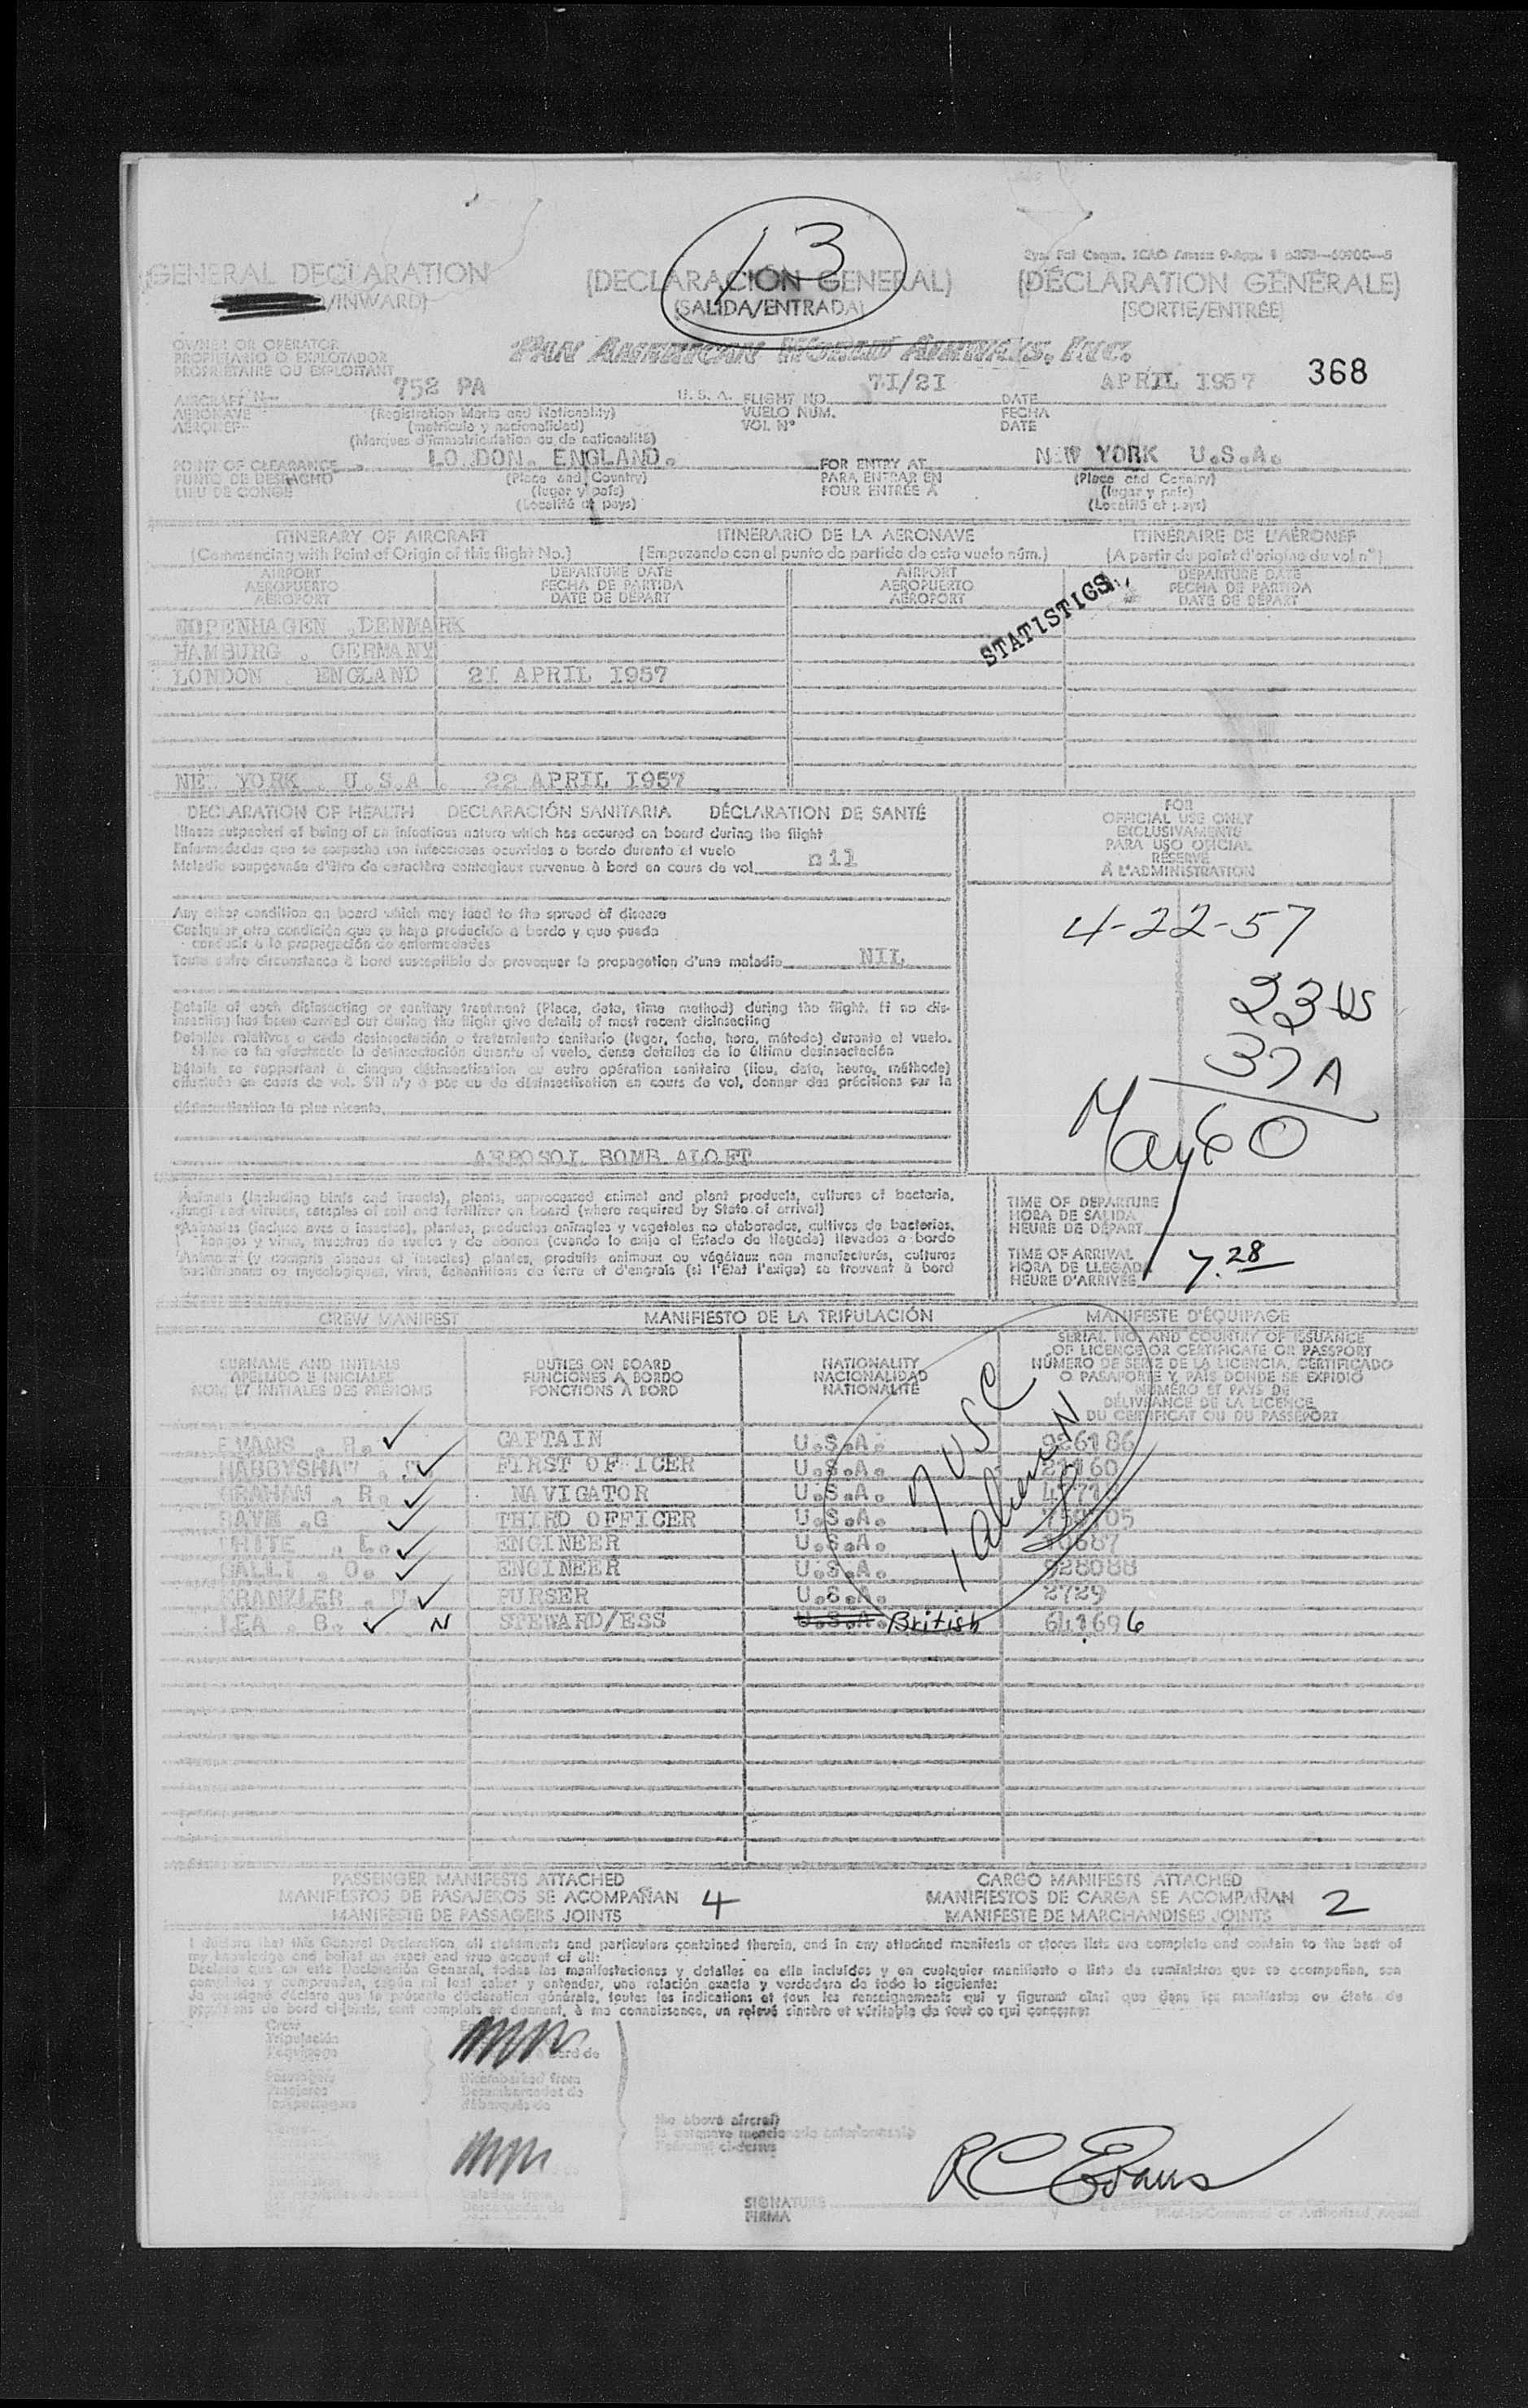 13
GENERAL DECLARATION (DECLARACIÓN GENERAL) (DÉCLARATION GÉNÉRALE)
/INWARD) (SALIDA/ENTRADA) (SORTIE/ENTRÉE)
OWNER OR OPERATOR
PROPIETARIO O EXPLOTADOR
PROPRIÉTAIRE OU EXPLOITANT
PAN AMERICAN WORLD AIRWAYS, INC.
368
AIRCRAFT No 752 PA U.S.A. FLIGHT NO. 7I/2I DATE APRIL I957
AERONAVE (Registration Marks and Nationality) VUELO NÚM. FECHA
AÉRONEF (matrícula y nacionalidad) VOL Nº DATE
(Marques d'immatriculation ou de nationalité)
POINT OF CLEARANCE LO DON. ENGLAND. FOR ENTRY AT NEW YORK U.S.A.
PUNTO DE DESPACHO (Place and Country) PARA ENTRAR EN (Place and Country)
LIEU DE CONGÉ (lugar y país) POUR ENTRÉE À (lugar y país)
(Localité et pays) (Localité et pays)
ITINERARY OF AIRCRAFT ITINERARIO DE LA AERONAVE ITINÉRAIRE DE L'AÉRONEF
(Commencing with Point of Origin of this flight No.) (Empezando con el punto de partida de este vuelo núm.) (A partir du point d'origine du vol nº)
AIRPORT DEPARTURE DATE AIRPORT DEPARTURE DATE
AEROPUERTO FECHA DE PARTIDA AEROPUERTO FECHA DE PARTIDA
AÉROPORT DATE DE DÉPART AÉROPORT DATE DE DÉPART
STATISTICS
COPENHAGEN ,DENMARK
HAMBURG . GERMANY
LONDON ENGLAND 2I APRIL I957
NE YORK . U.S.A . 22 APRIL I957
DECLARATION OF HEALTH DECLARACIÓN SANITARIA DÉCLARATION DE SANTÉ
Illness suspected of being of an infectious nature which has occured on board during the flight
Enfermedades que se sospecha son infecciosas ocurridas a bordo durante el vuelo
Maladie soupçonnée d'être de caractère contagieux survenue à bord en cours de vol nil
Any other condition on board which may lead to the spread of disease
Cualquier otra condición que se haya producido a bordo y que pueda
conducir a la propagación de enfermedades
Toute autre circonstance à bord susceptible de provoquer la propagation d'une maladie NIL
Details of each disinsecting or sanitary treatment (Place, date, time method) during the flight. If no dis-
insecting has been carried out during the flight give details of most recent disinsecting
Detalles relativos a cada desinsectación o tratamiento sanitario (lugar, fecha, hora, método) durante el vuelo.
Si no se ha efectuado la desinsectación durante el vuelo, dense detalles de la última desinsectación
Détails se rapportant à chaque désinsectisation ou autre opération sanitaire (lieu, date, heure, méthode)
effectuée en cours de vol. S'il n'y a pas eu de désinsectisation en cours de vol, donner des précisions sur la
désinsectisation la plus récente.
AEROSOL BOMB ALOFT
FOR
OFFICIAL USE ONLY
EXCLUSIVAMENTE
PARA USO OFICIAL
RÉSERVÉ
À L'ADMINISTRATION
4-22-57
23 US
37 A
60
May
Animals (including birds and insects), plants, unprocessed animal and plant products, cultures of bacteria,
fungi and viruses, samples of soil and fertilizer on board (where required by State of arrival)
Animales (incluso aves o insectos), plantas, productos animales y vegetales no elaborados, cultivos de bacterias,
hongos y virus, muestras de suelos y de abonos (cuando lo exija el Estado de llegada) llevados a bordo
Animaux (y compris oiseaux et insectes) plantes, produits animaux ou végétaux non manufacturés, cultures
bactériennes ou mycologiques, virus, échantillons de terre et d'engrais (si l'État l'exige) se trouvant à bord
TIME OF DEPARTURE
HORA DE SALIDA
HEURE DE DÉPART
TIME OF ARRIVAL
HORA DE LLEGADA 7.28
HEURE D'ARRIVÉE
CREW MANIFEST MANIFIESTO DE LA TRIPULACIÓN MANIFESTE D'ÉQUIPAGE
SURNAME AND INITIALS
APELLIDO E INICIALES
NOM ET INITIALES DES PRÉNOMS
DUTIES ON BOARD
FUNCIONES A BORDO
FONCTIONS À BORD
NATIONALITY
NACIONALIDAD
NATIONALITÉ
SERIAL NO. AND COUNTRY OF ISSUANCE
OF LICENCE OR CERTIFICATE OR PASSPORT
NÚMERO DE SERIE DE LA LICENCIA, CERTIFICADO
O PASAPORTE Y PAÍS DONDE SE EXPIDIÓ
NUMÉRO ET PAYS DE
DÉLIVRANCE DE LA LICENCE
DU CERTIFICAT OU DU PASSEPORT
7 USC
1 alien N
EVANS . R. CAPTAIN U.S.A. 926186
HABBYSHAW . FIRST OF ICER U.S.A. 21160
GRAHAM . R. NAVIGATOR U.S.A.
RAYM .G THIRD OFFICER U.S.A.
WHITE . L. ENGINEER U.S.A. 10687
GALLI . O. ENGINEER U.S.A. 928088
KRANZLER . U. PURSER U.S.A. 2729
LEA . B. N STEWARD/ESS U.S.A. British 641696
PASSENGER MANIFESTS ATTACHED CARGO MANIFESTS ATTACHED
MANIFIESTOS DE PASAJEROS SE ACOMPAÑAN 4 MANIFIESTOS DE CARGA SE ACOMPAÑAN 2
MANIFESTE DE PASSAGERS JOINTS MANIFESTE DE MARCHANDISES JOINTS
I declare that this General Declaration, all statements and particulars contained therein, and in any attached manifests or stores lists are complete and contain to the best of
my knowledge and belief an exact and true account of all:
Declaro que en esta Declaración General, todas las manifestaciones y detalles en ella incluídos y en cualquier manifiesto o lista de suministros que se acompañan, son
completos y comprenden, según mi leal saber y entender, una relación exacta y verdadera de todo lo siguiente:
Je soussigné déclare que la présente déclaration générale, toutes les indications et tous les renseignements qui y figurent ainsi que dans les manifestes ou états de
provisions de bord ci-joints, sont complets et donnent, à ma connaissance, un relevé sincère et véritable de tout ce qui concerne:
Crew
Tripulación
L'équipage
Passengers
Pasajeros
Les passagers
Disembarked from
Desembarcados de
débarqués de
the above aircraft
la aeronave mencionada anteriormente
l'aéronef ci-dessus
RC Evans
SIGNATURE
FIRMA
Pilot-in-Command or Authorized Agent